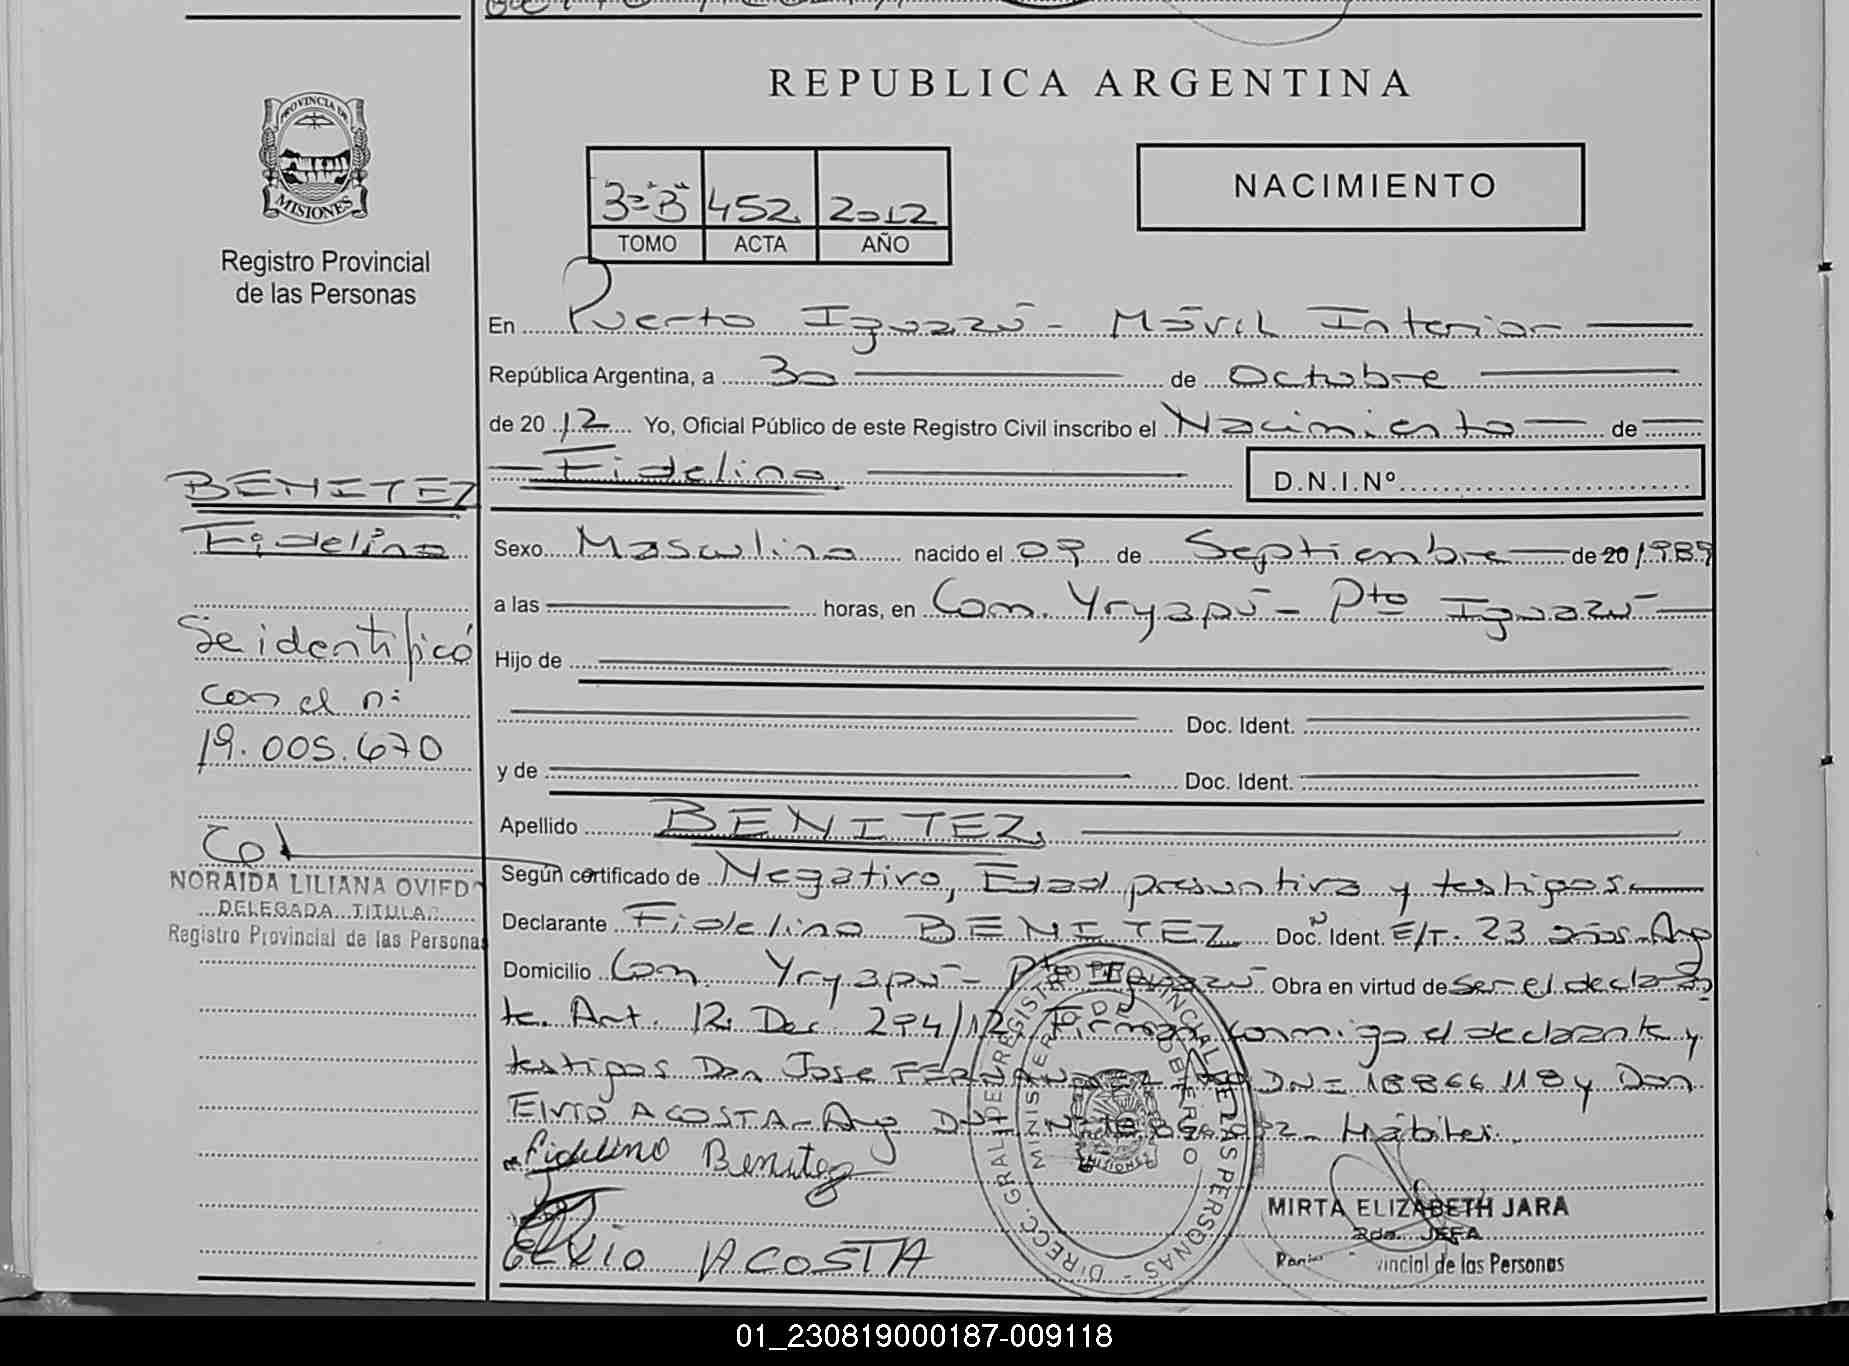 REPUBLICA ARGENTINA
PROVINCIA DE
MISIONES
Registro Provincial
de las Personas
NACIMIENTO
3º "B" 452 2012
TOMO ACTA AÑO
En Puerto Iguazú - Móvil Interior
República Argentina, a 30 de Octubre
de 2012 Yo, Oficial Público de este Registro Civil inscribo el Nacimiento de
Fidelino D.N.I.Nº
BENITEZ
Fidelino
Sexo Masculino nacido el 09 de Septiembre de 20 1989
a las horas, en Com. Yryapú - Pto Iguazú
Se identificó
con el nº
19.005.670
Hijo de
Doc. Ident.
y de Doc. Ident.
Apellido BENITEZ
Según certificado de Negativo, Edad presuntiva y testigos
Declarante Fidelino BENITEZ Doc. Ident. E/T. 23 años - Arg
Domicilio Com. Yryapú - Pto Iguazú Obra en virtud de Ser el declaran
te. Art. 12. Dec 294/12, Firman conmigo el declarante y
testigos Don Jose DNI 18866118 y Don
Elvio ACOSTA - Arg Hábiles.
NORAIDA LILIANA OVIEDO
DELEGADA TITULAR
Registro Provincial de las Personas
Fidelino Benitez
Elvio ACOSTA
DIREC. GRAL. DE REGISTRO PROVINCIAL DE LAS PERSONAS
MINISTERIO DE GOBIERNO
MISIONES
MIRTA ELIZABETH JARA
2da. JEFA
vincial de las Personas
01_230819000187-009118